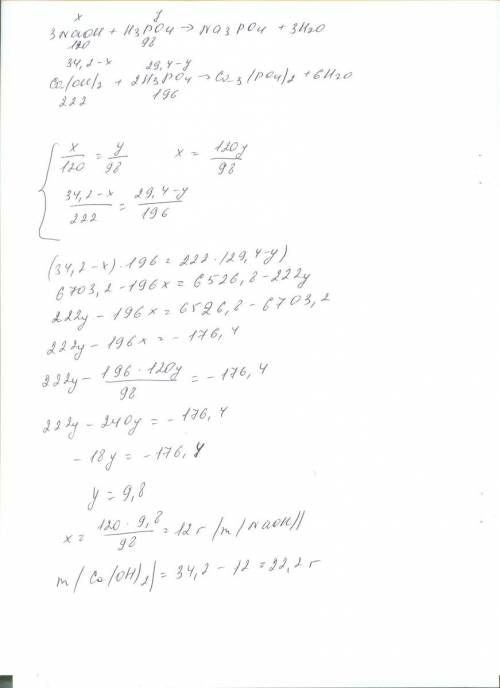 x y
3NaOH + H3PO4 → Na3PO4 + 3H2O
120 98
34,2-x 29,4-y
Ca(OH)2 + 2H3PO4 → Ca3(PO4)2 + 6H2O
222 196
x/120 = y/98 x = 120y/98
34,2-x/222 = 29,4-y/196
(34,2-x)·196 = 222·(29,4-y)
6703,2-196x = 6526,8-222y
222y-196x = 6526,8-6703,2
222y-196x = -176,4
222y - 196·120y/98 = -176,4
222y-240y = -176,4
-18y = -176,4
y = 9,8
x = 120·9,8/98 = 12г /m/NaOH//
m/Ca(OH)2/ = 34,2-12 = 22,2г